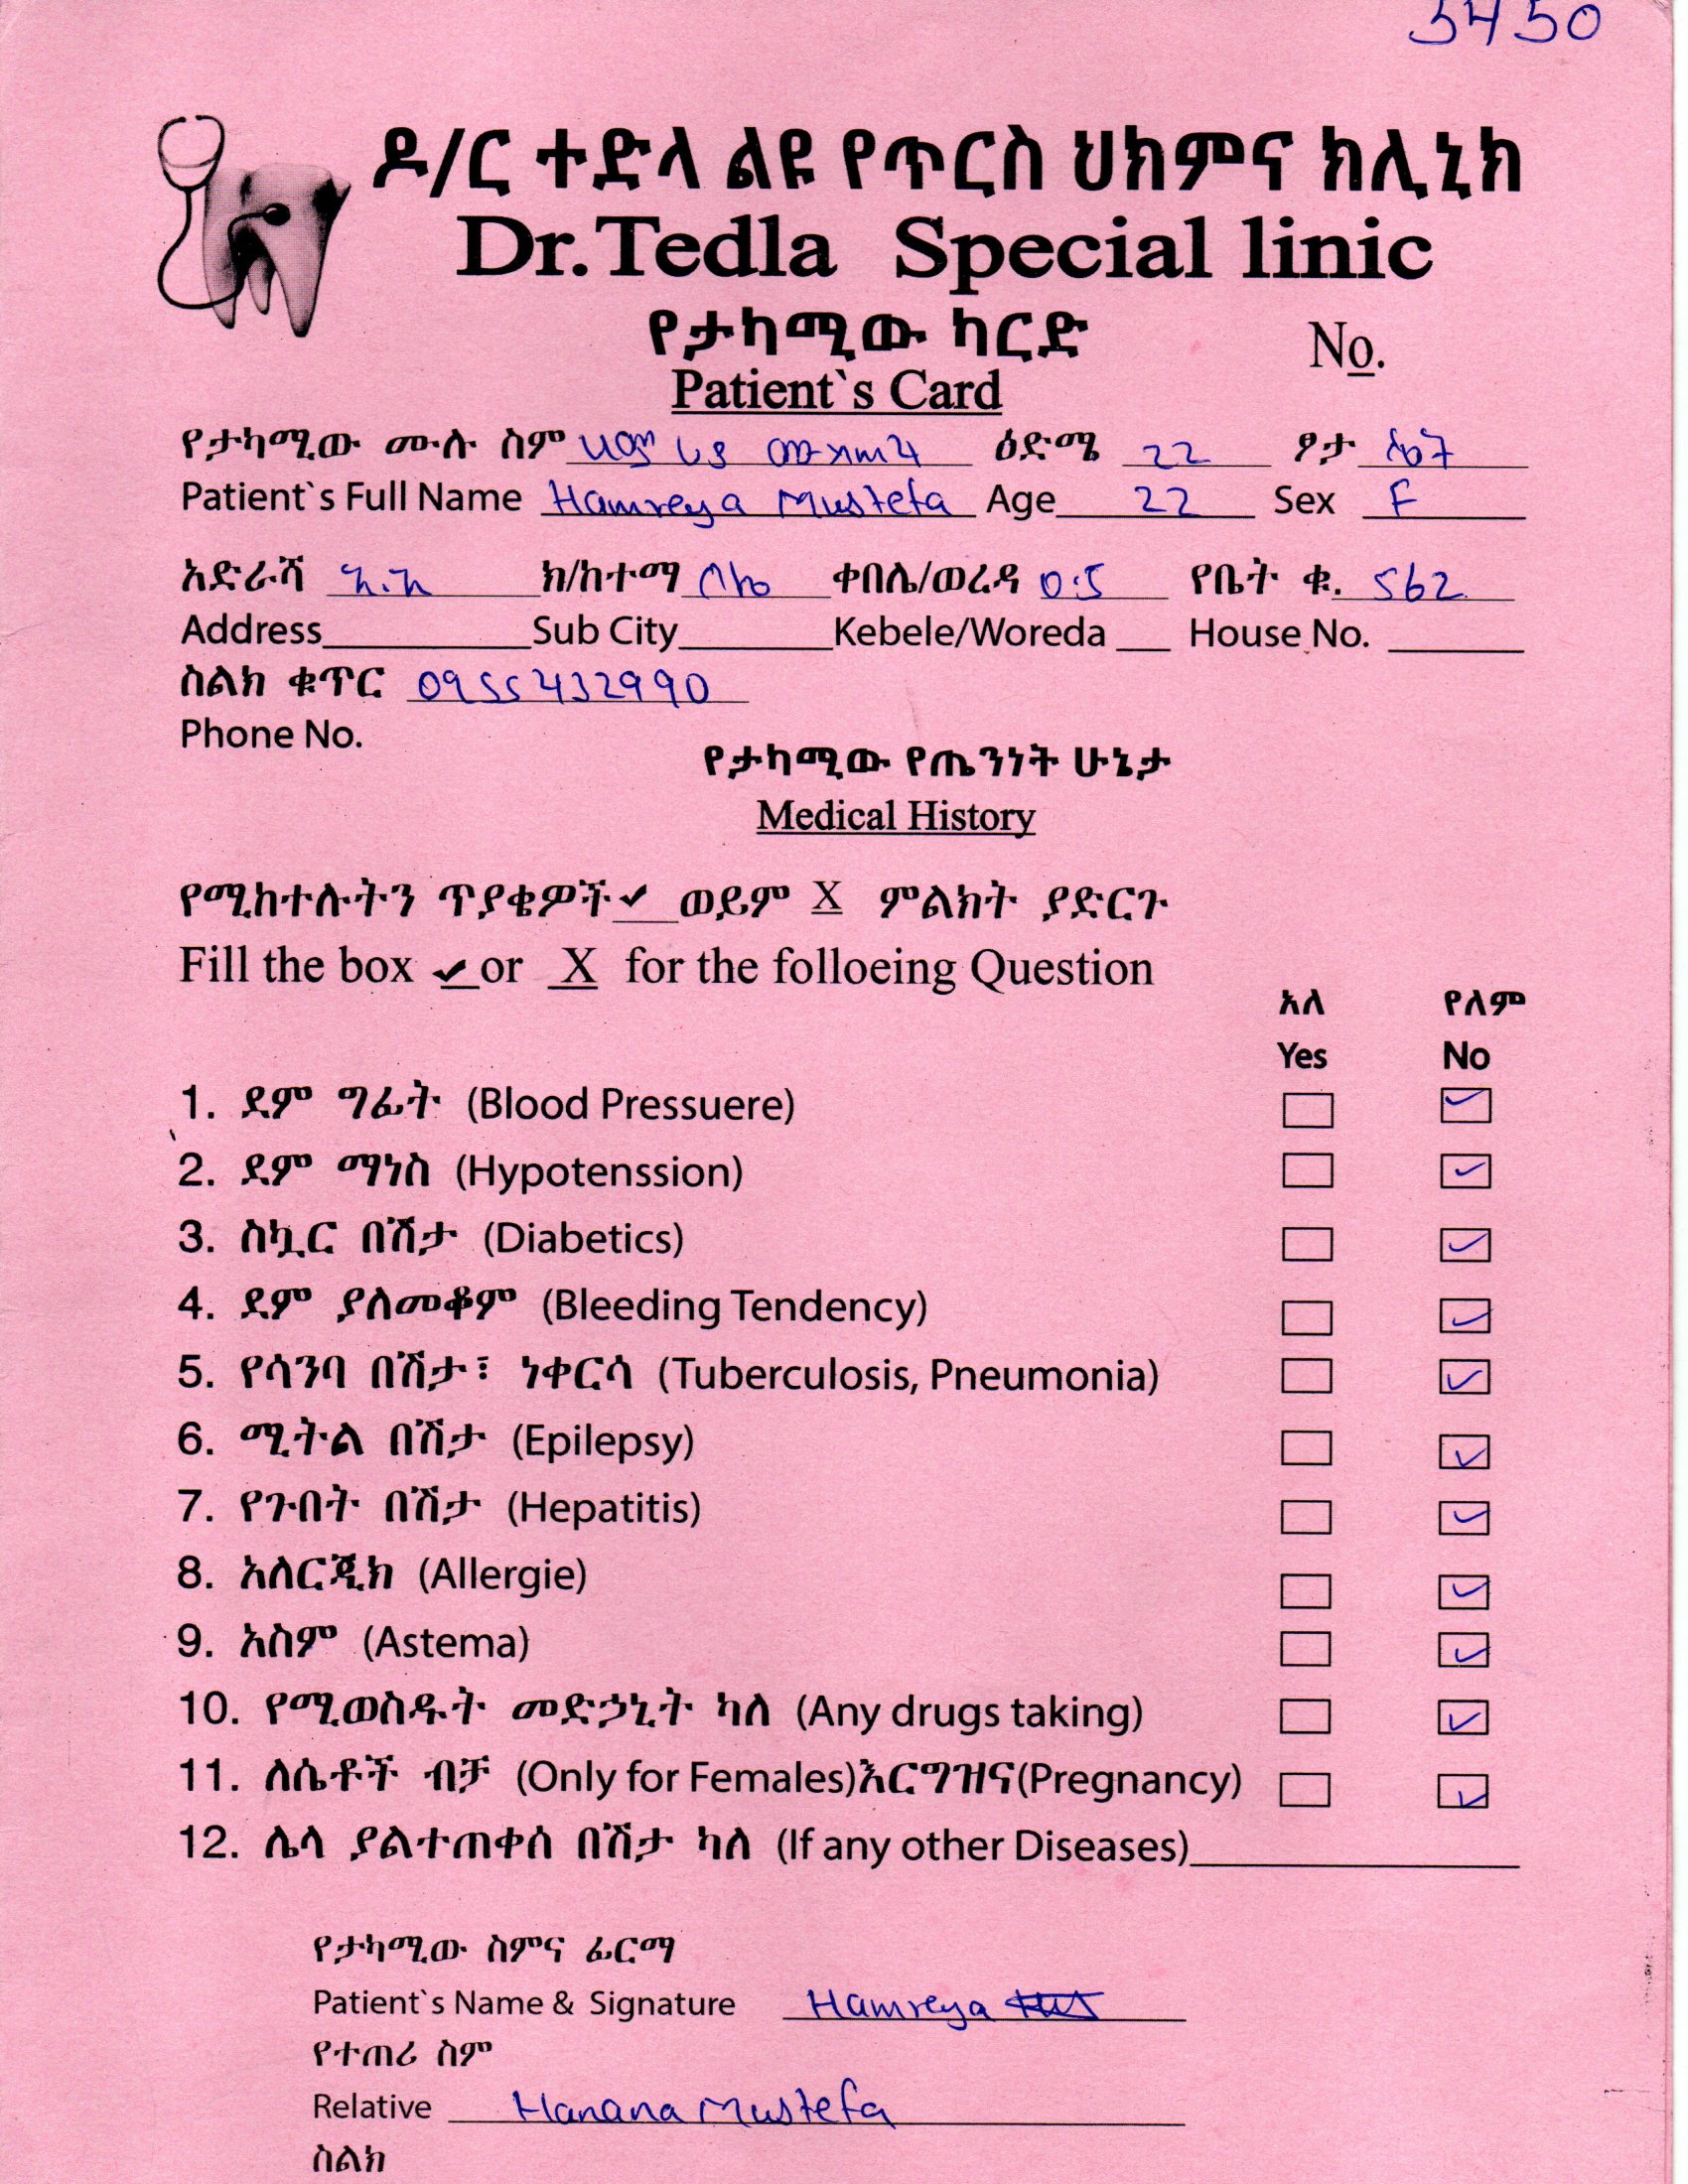 5450
ዶ/ር ተድላ ልዩ የጥርስ ህክምና ክሊኒክ
Dr.Tedla Special linic
የታካሚው ካርድ
No.
Patient`s Card
የታካሚው ሙሉ ስም ሀምሪያ ሙስጠፋ ዕድሜ 22 ፆታ ሴት
Patient`s Full Name Hamreya Mustefa Age 22 Sex F
አድራሻ አ.አ ክ/ከተማ ቦሌ ቀበሌ/ወረዳ 05 የቤት ቁ. 562
Address Sub City Kebele/Woreda House No.
ስልክ ቁጥር 0955432990
Phone No.
የታካሚው የጤንነት ሁኔታ
Medical History
የሚከተሉትን ጥያቄዎች ✓ ወይም X ምልክት ያድርጉ
Fill the box ✓ or X for the folloeing Question
አለ የለም
Yes No
1. ደም ግፊት (Blood Pressuere) ☐ ☑
2. ደም ማነስ (Hypotenssion) ☐ ☑
3. ስኳር በሽታ (Diabetics) ☐ ☑
4. ደም ያለመቆም (Bleeding Tendency) ☐ ☑
5. የሳንባ በሽታ፣ ነቀርሳ (Tuberculosis, Pneumonia) ☐ ☑
6. ሚትል በሽታ (Epilepsy) ☐ ☑
7. የጉበት በሽታ (Hepatitis) ☐ ☑
8. አለርጂክ (Allergie) ☐ ☑
9. አስም (Astema) ☐ ☑
10. የሚወስዱት መድኃኒት ካለ (Any drugs taking) ☐ ☑
11. ለሴቶች ብቻ (Only for Females)እርግዝና(Pregnancy) ☐ ☑
12. ሌላ ያልተጠቀሰ በሽታ ካለ (If any other Diseases)
የታካሚው ስምና ፊርማ
Patient`s Name & Signature Hamreya
የተጠሪ ስም
Relative Hanana Mustefa
ስልክ